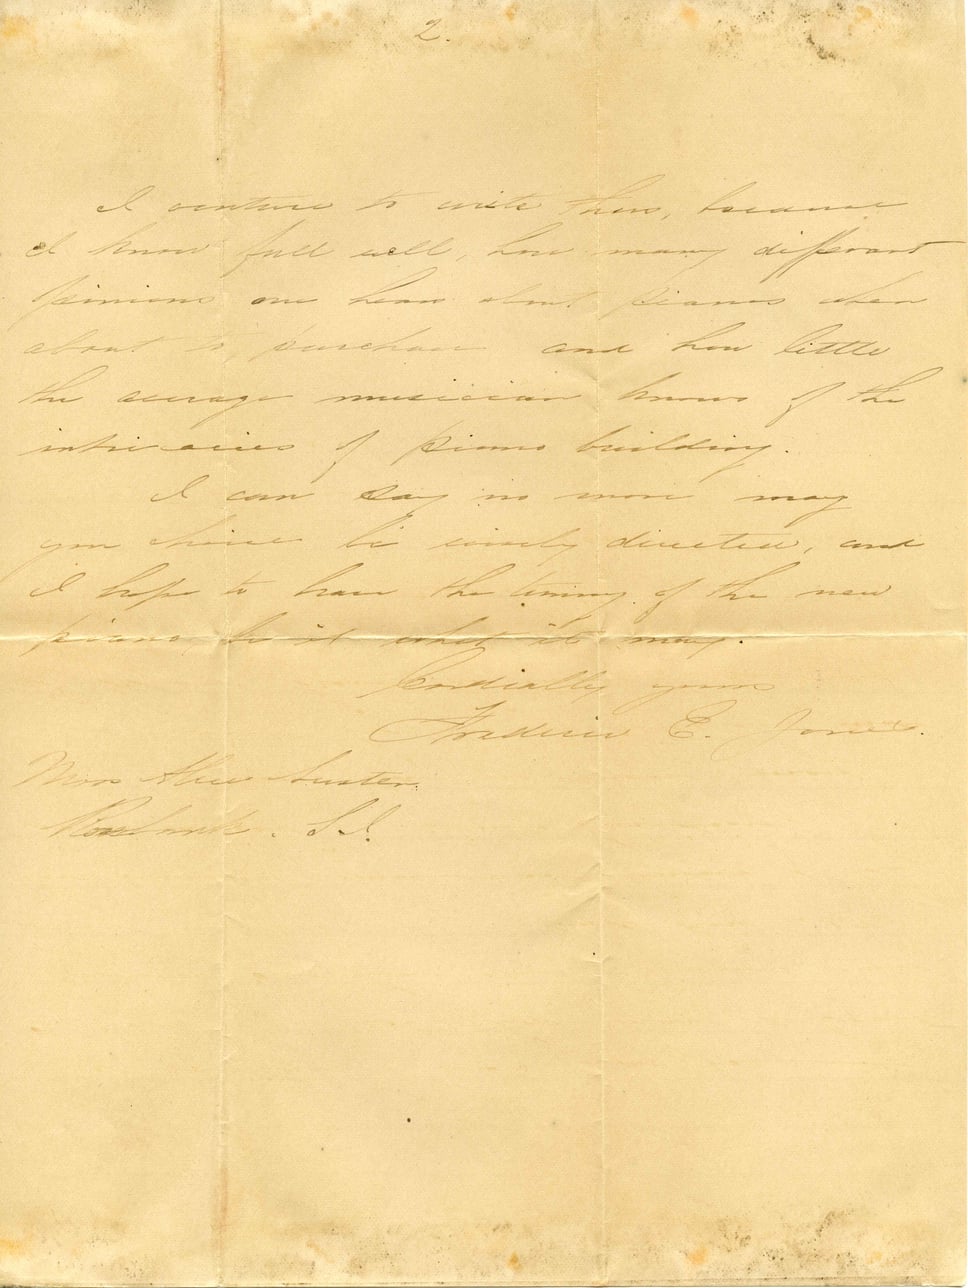 2.
I venture to write this, because
I know full well, how many different
opinions one hears about pianos when
about to, purchase and how little
the average musician knows of the
intricacies of piano building.
I can say no more may
you choice be wisely directed, and
I hope to have the tuning of the new
piano, be it what it may.
Cordially yours
Frederic E. Jones.
Miss Alice Austen.
Rosebank. S.I.